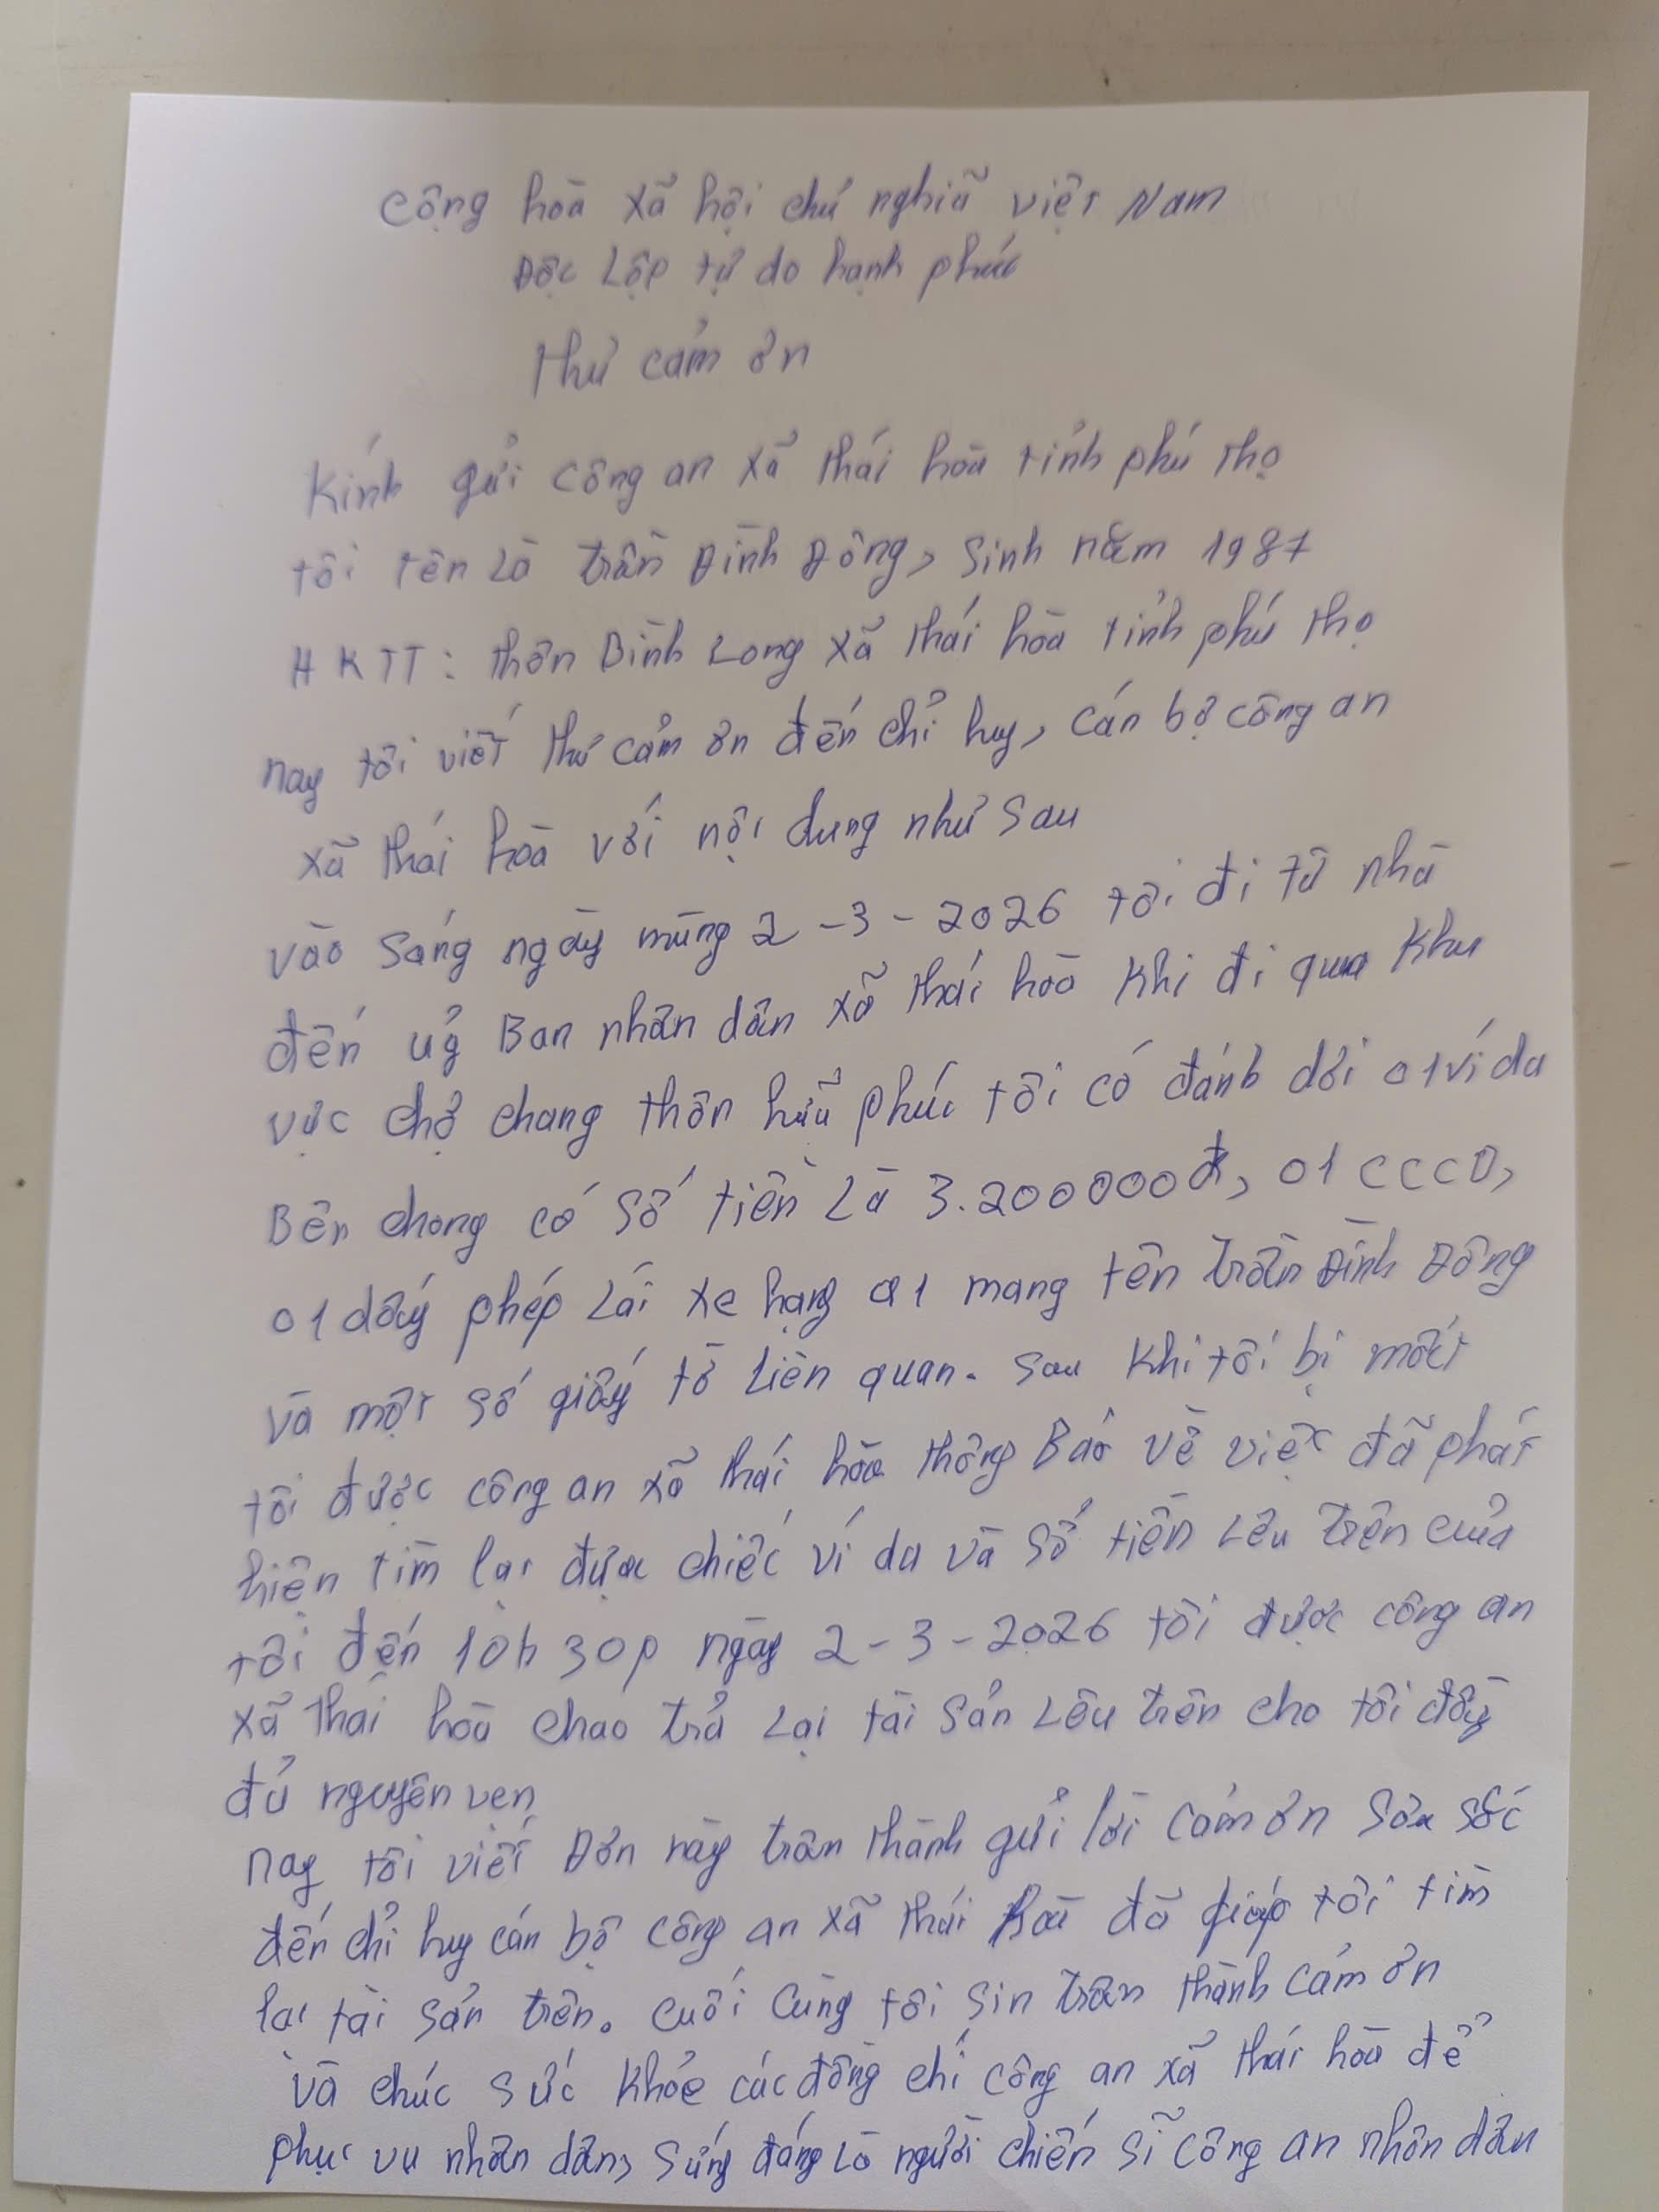 cộng hòa xã hội chủ nghĩa việt Nam
Độc Lập tự do hạnh phúc
thư cảm ơn
Kính gửi công an xã thái hòa tỉnh phú thọ
tôi tên Là trần Đình Đông, Sinh năm 1987
HKTT: thôn Bình Long xã thái hòa tỉnh phú thọ
nay tôi viết thư cảm ơn đến chỉ huy, cán bộ công an
xã thái hòa với nội dung như sau
vào sáng ngày mùng 2-3-2026 tôi đi từ nhà
đến uỷ Ban nhân dân xã thái hòa Khi đi qua Khu
vực chợ chang thôn hữu phúc tôi có đánh dơi 01 ví da
Bên chong có số tiền Là 3.200000đ, 01 CCCD,
01 dấy phép Lái xe hạng a1 mang tên trần Đình Đông
và một số giấy tờ liên quan. sau Khi tôi bị mất
tôi được công an xã thái hòa thông Báo về việc đã phát
hiện tìm lại được chiếc ví da và số tiền Lêu trên của
tôi đến 10h30p ngày 2-3-2026 tôi được công an
xã thái hòa chao trả Lại tài sản Lêu trên cho tôi đầy
đủ nguyên vẹn
nay tôi viết Đơn này trân thành gửi lời cảm ơn sâu sắc
đến chỉ huy cán bộ công an xã thái hòa đã giúp tôi tìm
lại tài sản trên. cuối cùng tôi sin trân thành cảm ơn
và chúc sức Khỏe các đồng chí công an xã thái hòa để
phục vụ nhân dân, sứng đáng Là người chiến sĩ công an nhân dân